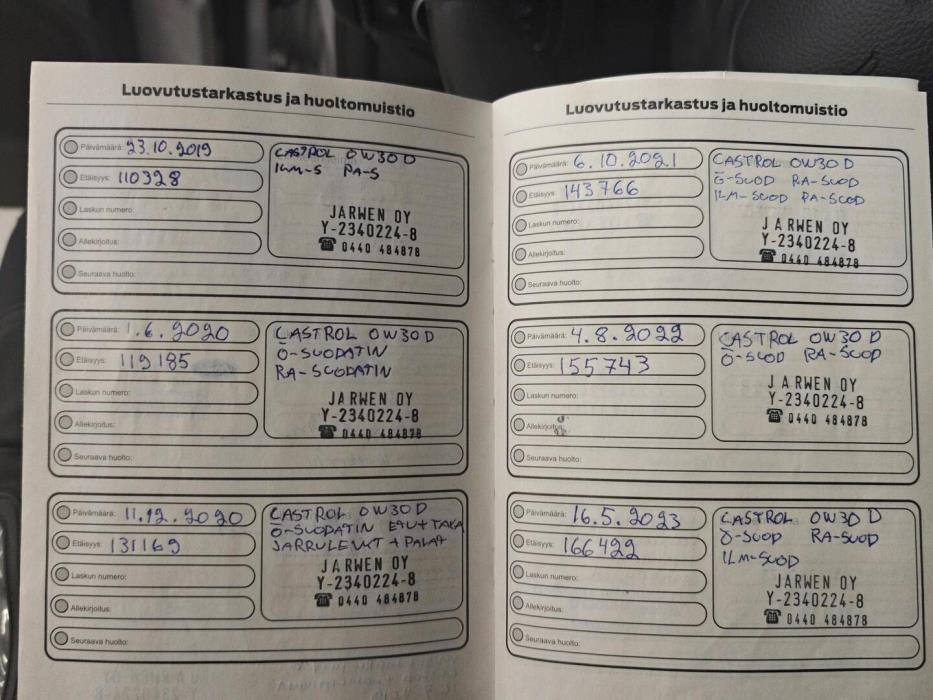 Luovutustarkastus ja huoltomuistio
Päivämäärä: 23.10.2019
Etäisyys: 110328
Laskun numero:
Allekirjoitus:
Seuraava huolto:
CASTROL 0W30 D
ILM-S PA-S
JARWEN OY
Y-2340224-8
☎ 0440 484878
Päivämäärä: 1.6.2020
Etäisyys: 119185
Laskun numero:
Allekirjoitus:
Seuraava huolto:
CASTROL 0W30 D
Ö-SUODATIN
RA-SUODATIN
JARWEN OY
Y-2340224-8
☎ 0440 484878
Päivämäärä: 11.12.2020
Etäisyys: 131169
Laskun numero:
Allekirjoitus:
Seuraava huolto:
CASTROL 0W30 D
Ö-SUODATIN ETU+TAKA
JARRULEVYT + PALAT
JARWEN OY
Y-2340224-8
☎ 0440 484878
Luovutustarkastus ja huoltomuistio
Päivämäärä: 6.10.2021
Etäisyys: 143766
Laskun numero:
Allekirjoitus:
Seuraava huolto:
CASTROL 0W30 D
Ö-SUOD RA-SUOD
ILM-SUOD PA-SUOD
JARWEN OY
Y-2340224-8
☎ 0440 484878
Päivämäärä: 4.8.2022
Etäisyys: 155743
Laskun numero:
Allekirjoitus:
Seuraava huolto:
CASTROL 0W30 D
Ö-SUOD RA-SUOD
JARWEN OY
Y-2340224-8
☎ 0440 484878
Päivämäärä: 16.5.2023
Etäisyys: 166422
Laskun numero:
Allekirjoitus:
Seuraava huolto:
CASTROL 0W30 D
Ö-SUOD RA-SUOD
ILM-SUOD
JARWEN OY
Y-2340224-8
☎ 0440 484878